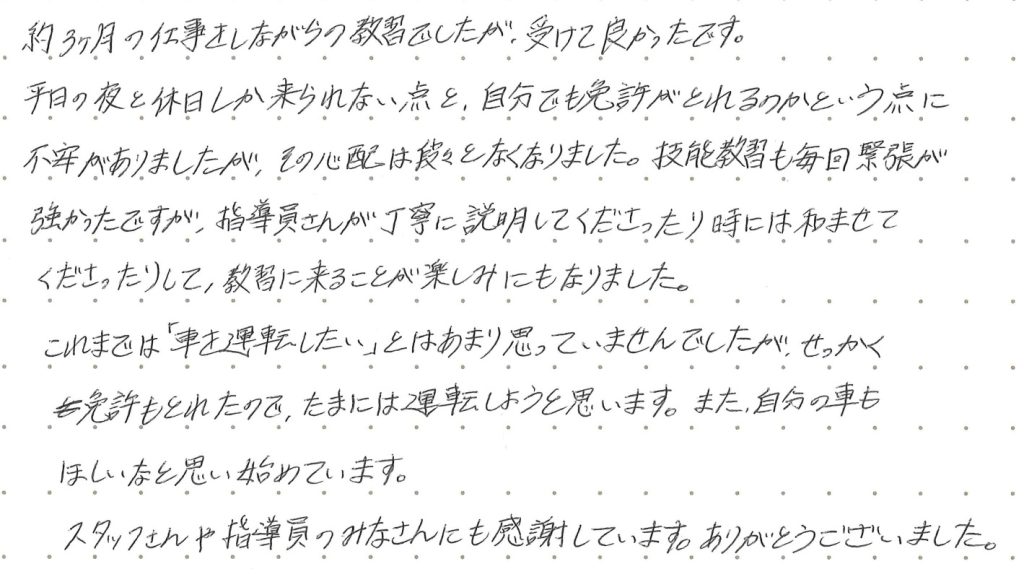 約3ヶ月の仕事をしながらの教習でしたが、受けて良かったです。
平日の夜と休日しか来られない点と、自分でも免許がとれるのかという点に
不安がありましたが、その心配は段々となくなりました。技能教習も毎回緊張が
強かったですが、指導員さんが丁寧に説明してくださったり時には和ませて
くださったりして、教習に来ることが楽しみにもなりました。
これまでは「車を運転したい」とはあまり思っていませんでしたが、せっかく
免許もとれたので、たまには運転しようと思います。また、自分の車も
ほしいなと思い始めています。
スタッフさんや指導員のみなさんにも感謝しています。ありがとうございました。